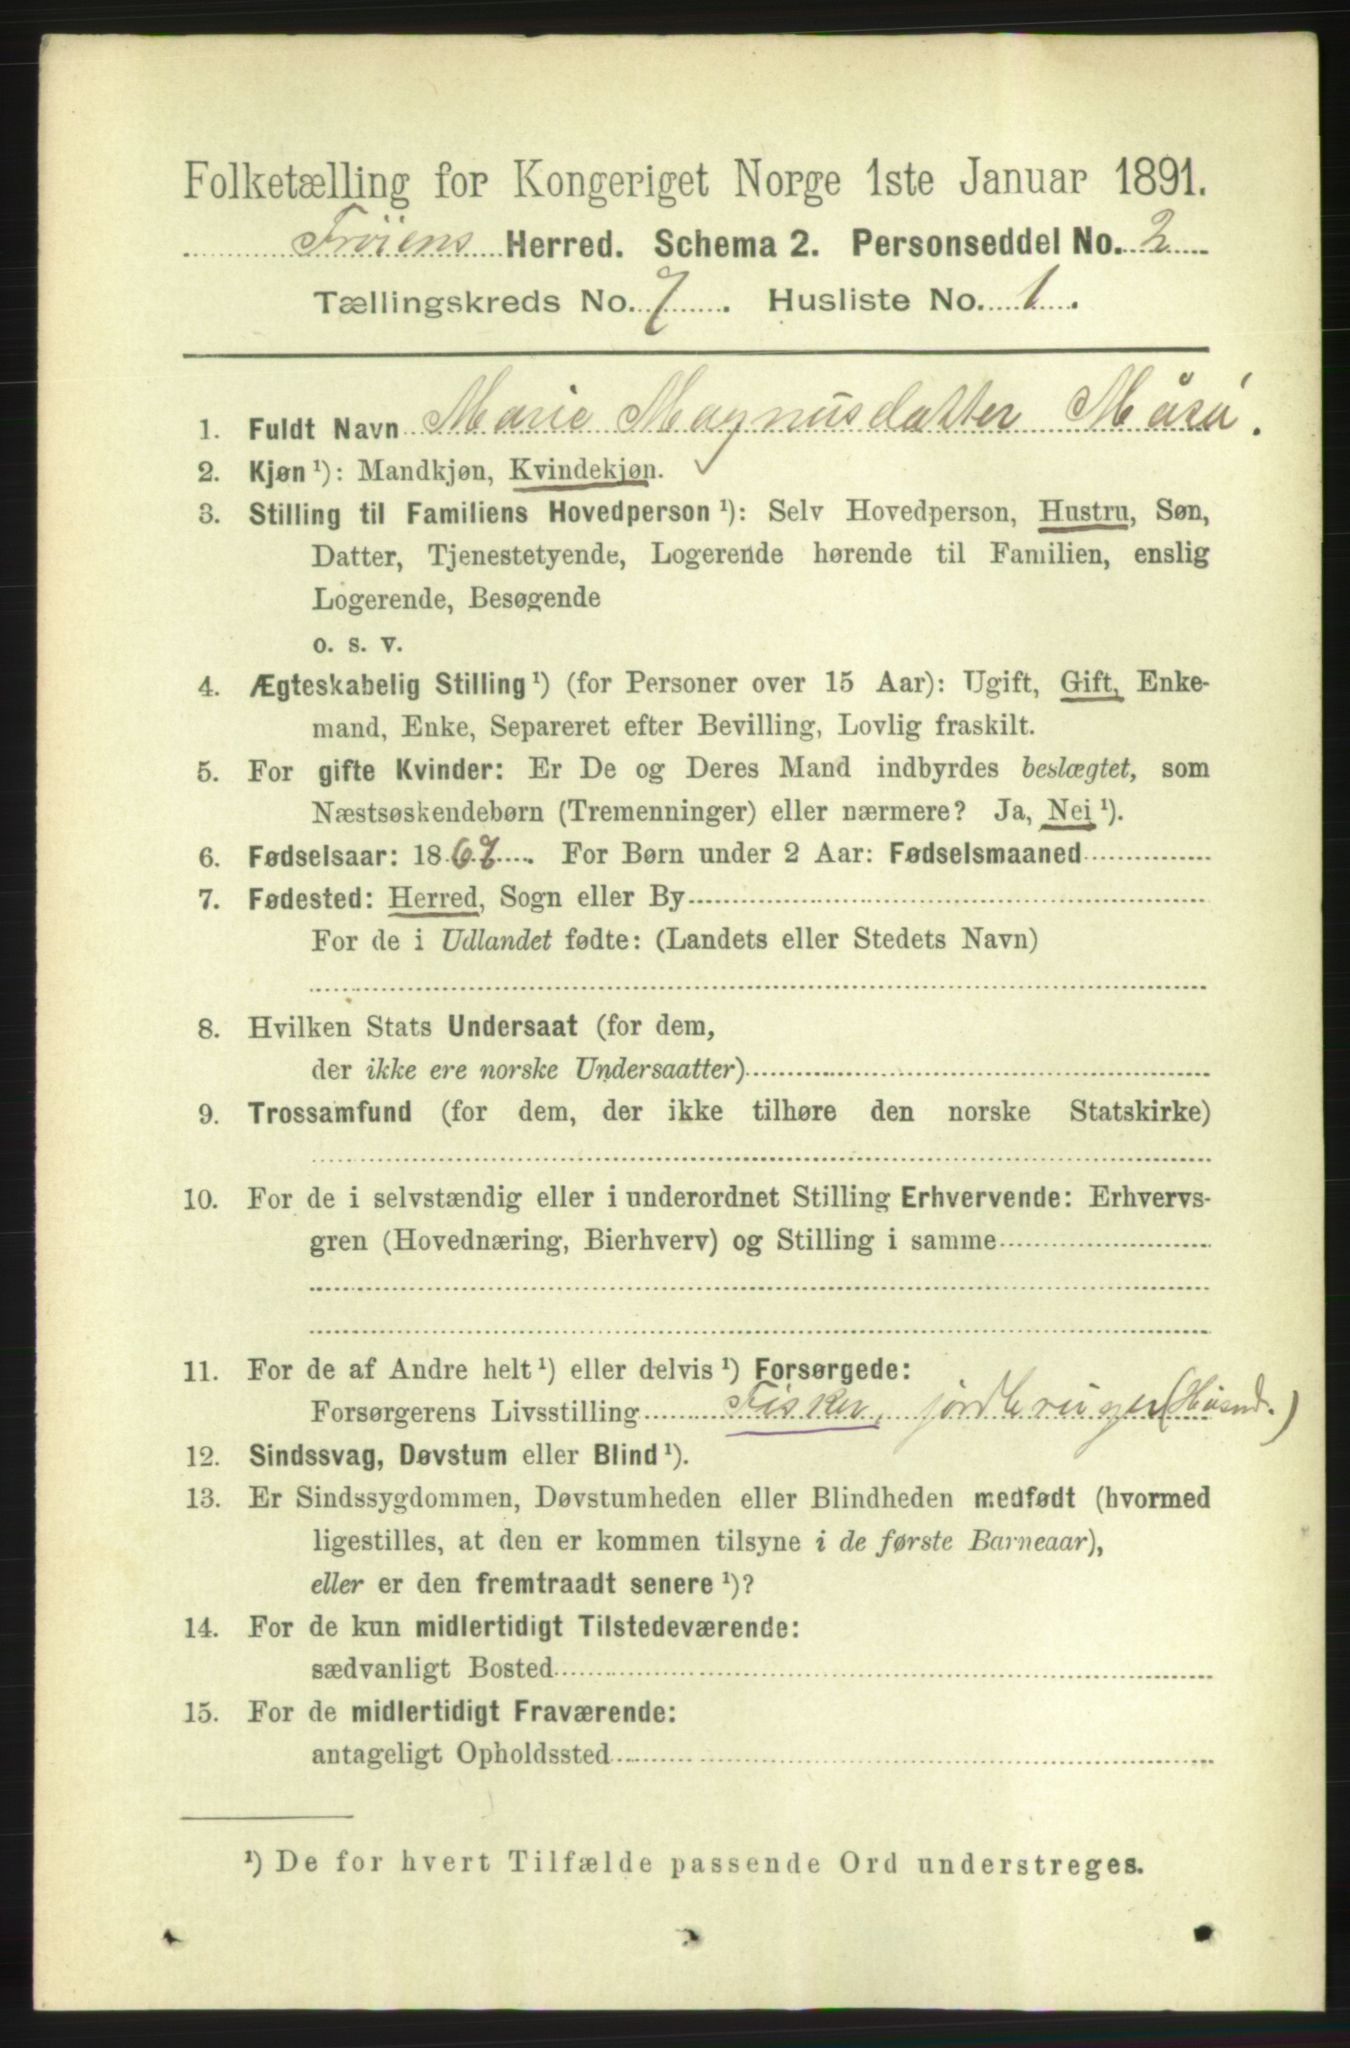 Folketælling for Kongeriget Norge 1ste Januar 1891.
Frøiens Herred. Schema 2. Personseddel No. 2
Tællingskreds No. 7. Husliste No. 1.
1. Fuldt Navn Marie Magnusdatter Måsø.
2. Kjøn ¹): Mandkjøn, Kvindekjøn.
3. Stilling til Familiens Hovedperson ¹): Selv Hovedperson, Hustru, Søn,
Datter, Tjenestetyende, Logerende hørende til Familien, enslig
Logerende, Besøgende
o. s. v.
4. Ægteskabelig Stilling ¹) (for Personer over 15 Aar): Ugift, Gift, Enke-
mand, Enke, Separeret efter Bevilling, Lovlig fraskilt.
5. For gifte Kvinder: Er De og Deres Mand indbyrdes beslægtet, som
Næstsøskendebørn (Tremenninger) eller nærmere? Ja, Nei ¹).
6. Fødselsaar: 1867. For Børn under 2 Aar: Fødselsmaaned
7. Fødested: Herred, Sogn eller By
For de i Udlandet fødte: (Landets eller Stedets Navn)
8. Hvilken Stats Undersaat (for dem,
der ikke ere norske Undersaatter)
9. Trossamfund (for dem, der ikke tilhøre den norske Statskirke)
10. For de i selvstændig eller i underordnet Stilling Erhvervende: Erhvervs-
gren (Hovednæring, Bierhverv) og Stilling i samme
11. For de af Andre helt ¹) eller delvis ¹) Forsørgede:
Forsørgerens Livsstilling Fisker, jordbruger (Husmd.)
12. Sindssvag, Døvstum eller Blind ¹).
13. Er Sindssygdommen, Døvstumheden eller Blindheden medfødt (hvormed
ligestilles, at den er kommen tilsyne i de første Barneaar),
eller er den fremtraadt senere ¹)?
14. For de kun midlertidigt Tilstedeværende:
sædvanligt Bosted
15. For de midlertidigt Fraværende:
antageligt Opholdssted
¹) De for hvert Tilfælde passende Ord understreges.